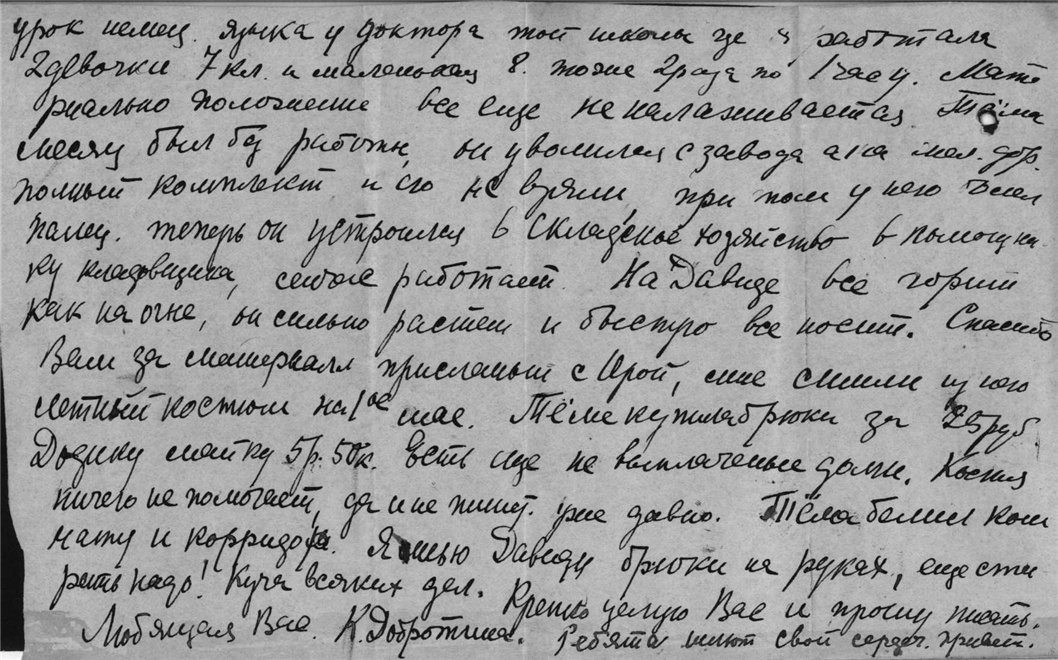 урок немец. языка у доктора той школы где я работала
2 девочки 7 кл. и маленькая 8. тоже 2 раза по 1 часу. Мате
риально положение все еще не налаживается Тёма
месяц был без работы, он уволился с завода а на жел. дор.
полный комплект и его не взяли, при том у него болел
палец. теперь он устроился в складское хозяйство в помощни
ку кладовщика, сейчас работает. На Давиде все горит
как на огне, он сильно растет и быстро все носит. Спасибо
Вам за матерьялл присланый с Ирой, мне сшили из него
летный костюм на 1ое мае. Тёме купила брюки за 25 руб
Додику майку 5 р. 50 к. Есть еще не выплаченые долги. Костя
ничего не помогает, да и не пишут уже давно. Тёма белил ком
нату и корридор. Я шью Давиду брюки на руках, еще сти
рать надо! Куча всяких дел. Крепко целую Вас и прошу писать.
Любящая Вас. К. Добротина. Ребята шлют свой сердеч. привет.